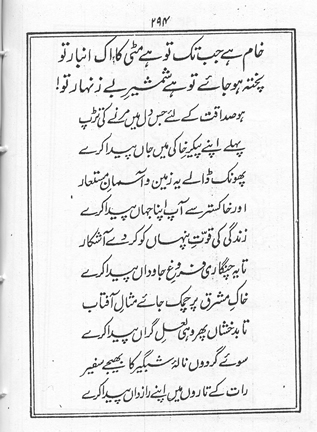 ۲۹۴
خام ہے جب تک تو ہے مٹی کا اک انبار تو
پختہ ہو جائے تو ہے شمشیرِ بے زنہار تو!
ہو صداقت کے لئے جس دل میں مرنے کی تڑپ
پہلے اپنے پیکرِ خاکی میں جاں پیدا کرے
پھونک ڈالے یہ زمین و آسمانِ مستعار
اور خاکستر سے آپ اپنا جہاں پیدا کرے
زندگی کی قوتِ پنہاں کو کر دے آشکار
تا یہ چنگاری فروغِ جاوداں پیدا کرے
خاکِ مشرق پر چمک جائے مثالِ آفتاب
تا بدخشاں پھر وہی لعلِ گراں پیدا کرے
سوئے گردوں نالۂ شبگیر کا بھیجے سفیر
رات کے تاروں میں اپنے رازداں پیدا کرے